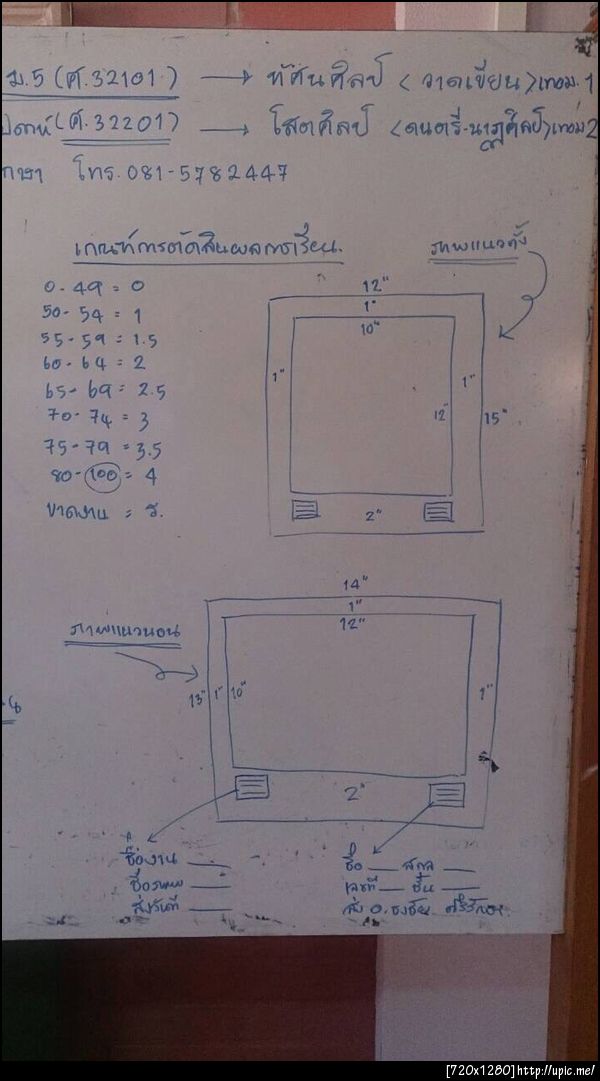 ม.5 (ศ.32101) → ทัศนศิลป์ < วาดเขียน > เทอม.1
(ศ.32201) → โสตศิลป์ <ดนตรี-นาฏศิลป์> เทอม 2
โทร.081-5782447
เกณฑ์การตัดสินผลการเรียน.
0-49 = 0
50-54 = 1
55-59 = 1.5
60-64 = 2
65-69 = 2.5
70-74 = 3
75-79 = 3.5
80-100 = 4
ขาดงาน = ร.
ภาพแนวตั้ง
12"
1"
10"
1"
1"
12"
15"
2"
ภาพแนวนอน
14"
1"
12"
13"
1"
10"
1"
2"
ชื่องาน
ชื่อภาพ
ส่งวันที่
ชื่อ สกุล
เลขที่ ชั้น
ส่ง อ.ธงชัย
[720x1280]http://upic.me/